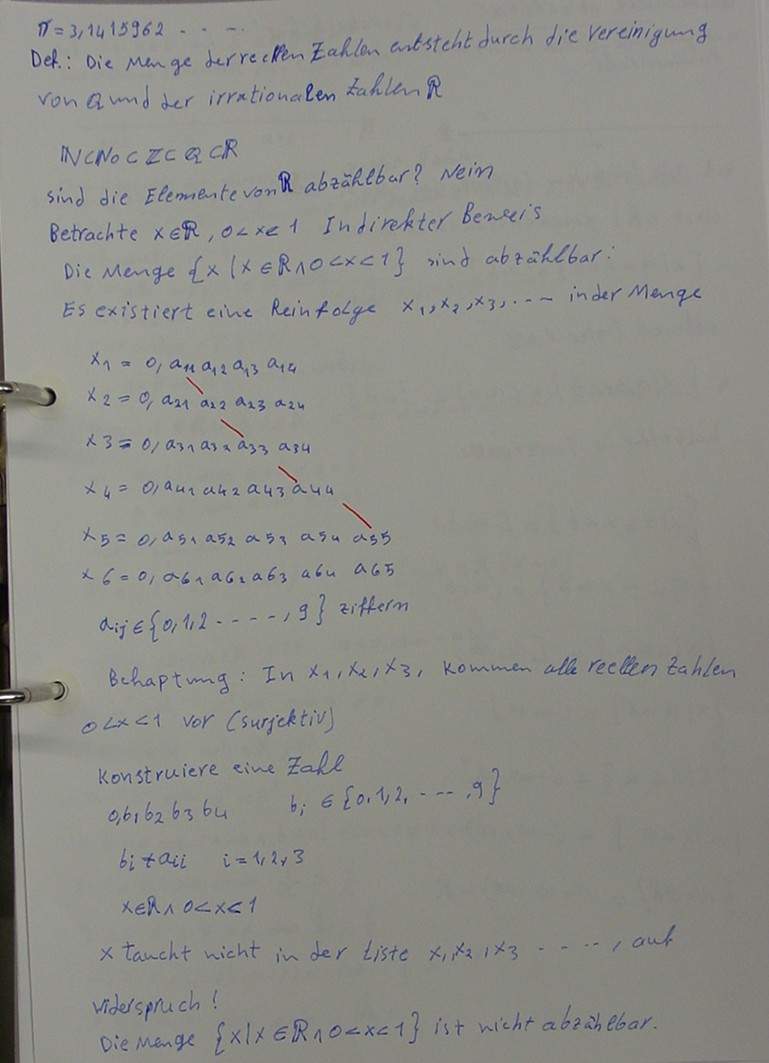 π = 3,1415962 - - -.
Def.: Die Menge der reellen Zahlen entsteht durch die Vereinigung
von Q und der irrationalen Zahlen ℝ
ℕ⊂ℕo⊂ℤ⊂Q⊂ℝ
sind die Elemente von ℝ abzählbar? Nein
Betrachte x∈ℝ, 0<x<1 Indirekter Beweis
Die Menge {x|x∈ℝ∧0<x<1} sind abzählbar:
Es existiert eine Reinfolge x₁,x₂,x₃,--- in der Menge
x₁ = 0,a₁₁ a₁₂ a₁₃ a₁₄
x₂ = 0,a₂₁ a₂₂ a₂₃ a₂₄
x3 = 0,a₃₁ a₃₂ a₃₃ a₃₄
x₄ = 0,a₄₁ a₄₂ a₄₃ a₄₄
x₅ = 0,a₅₁ a₅₂ a₅₃ a₅₄ a₅₅
x₆ = 0,a₆₁ a₆₂ a₆₃ a₆₄ a₆₅
aᵢⱼ∈{0,1,2 - - - - -,9} ziffern
Behaptung: In x₁,x₂,x₃, kommen alle reellen Zahlen
0<x<1 vor (surjektiv)
Konstruiere eine Zahl
0,b₁b₂b₃b₄ bᵢ ∈{0,1,2, - - -,9}
bᵢ≠aᵢᵢ i=1,2,3
x∈ℝ∧0<x<1
x taucht nicht in der Liste x₁,x₂,x₃ - - - -, auf
Widerspruch!
Die Menge {x|x∈ℝ∧0<x<1} ist nicht abzählbar.